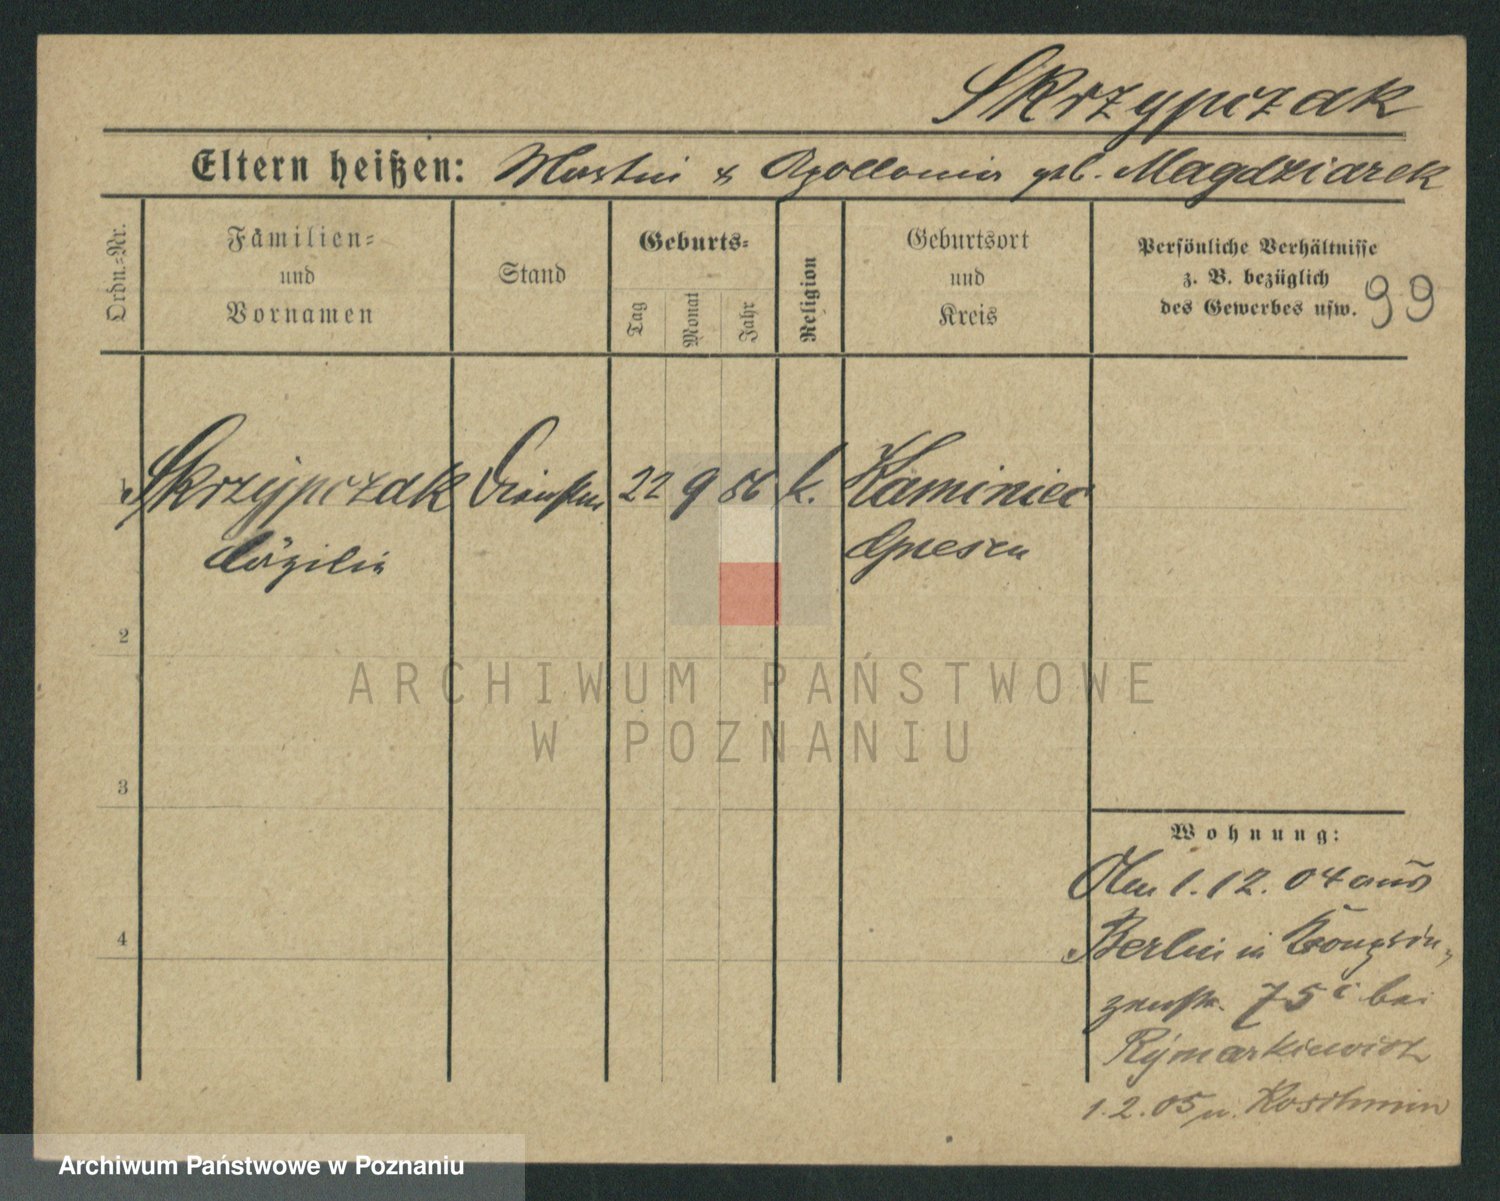 Skrzypczak
Eltern heißen: Martin & Apollonia geb. Magdziarek
Ordn.-Nr.
Familien-
und
Vornamen
Stand
Geburts-
Tag
Monat
Jahr
Religion
Geburtsort
und
Kreis
Persönliche Verhältnisse
z. B. bezüglich
des Gewerbes usw.
99
1 Skrzypczak 22 9 86 k. Kaminiec
Cäzilie Gnesen
2
3
4
Wohnung:
1.12.04 aus
Berlin in Kronprin-
zenstr. 75 bei
Rymarkiewicz
1.2.05 n. Koschmin
ARCHIWUM PAŃSTWOWE
W POZNANIU
Archiwum Państwowe w Poznaniu